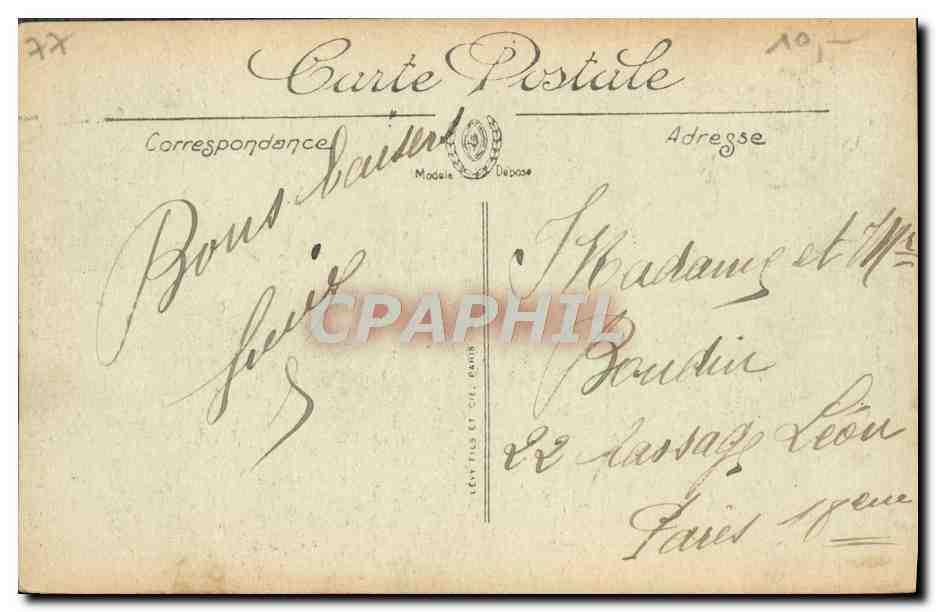 77
10,-
Carte Postale
Correspondance
Adresse
Modèle Déposé
Bons baisers
Madame et Mr
Boudin
22 Passage Léon
Paris 18eme
LÉVY FILS ET CIE, PARIS
CPAPHIL